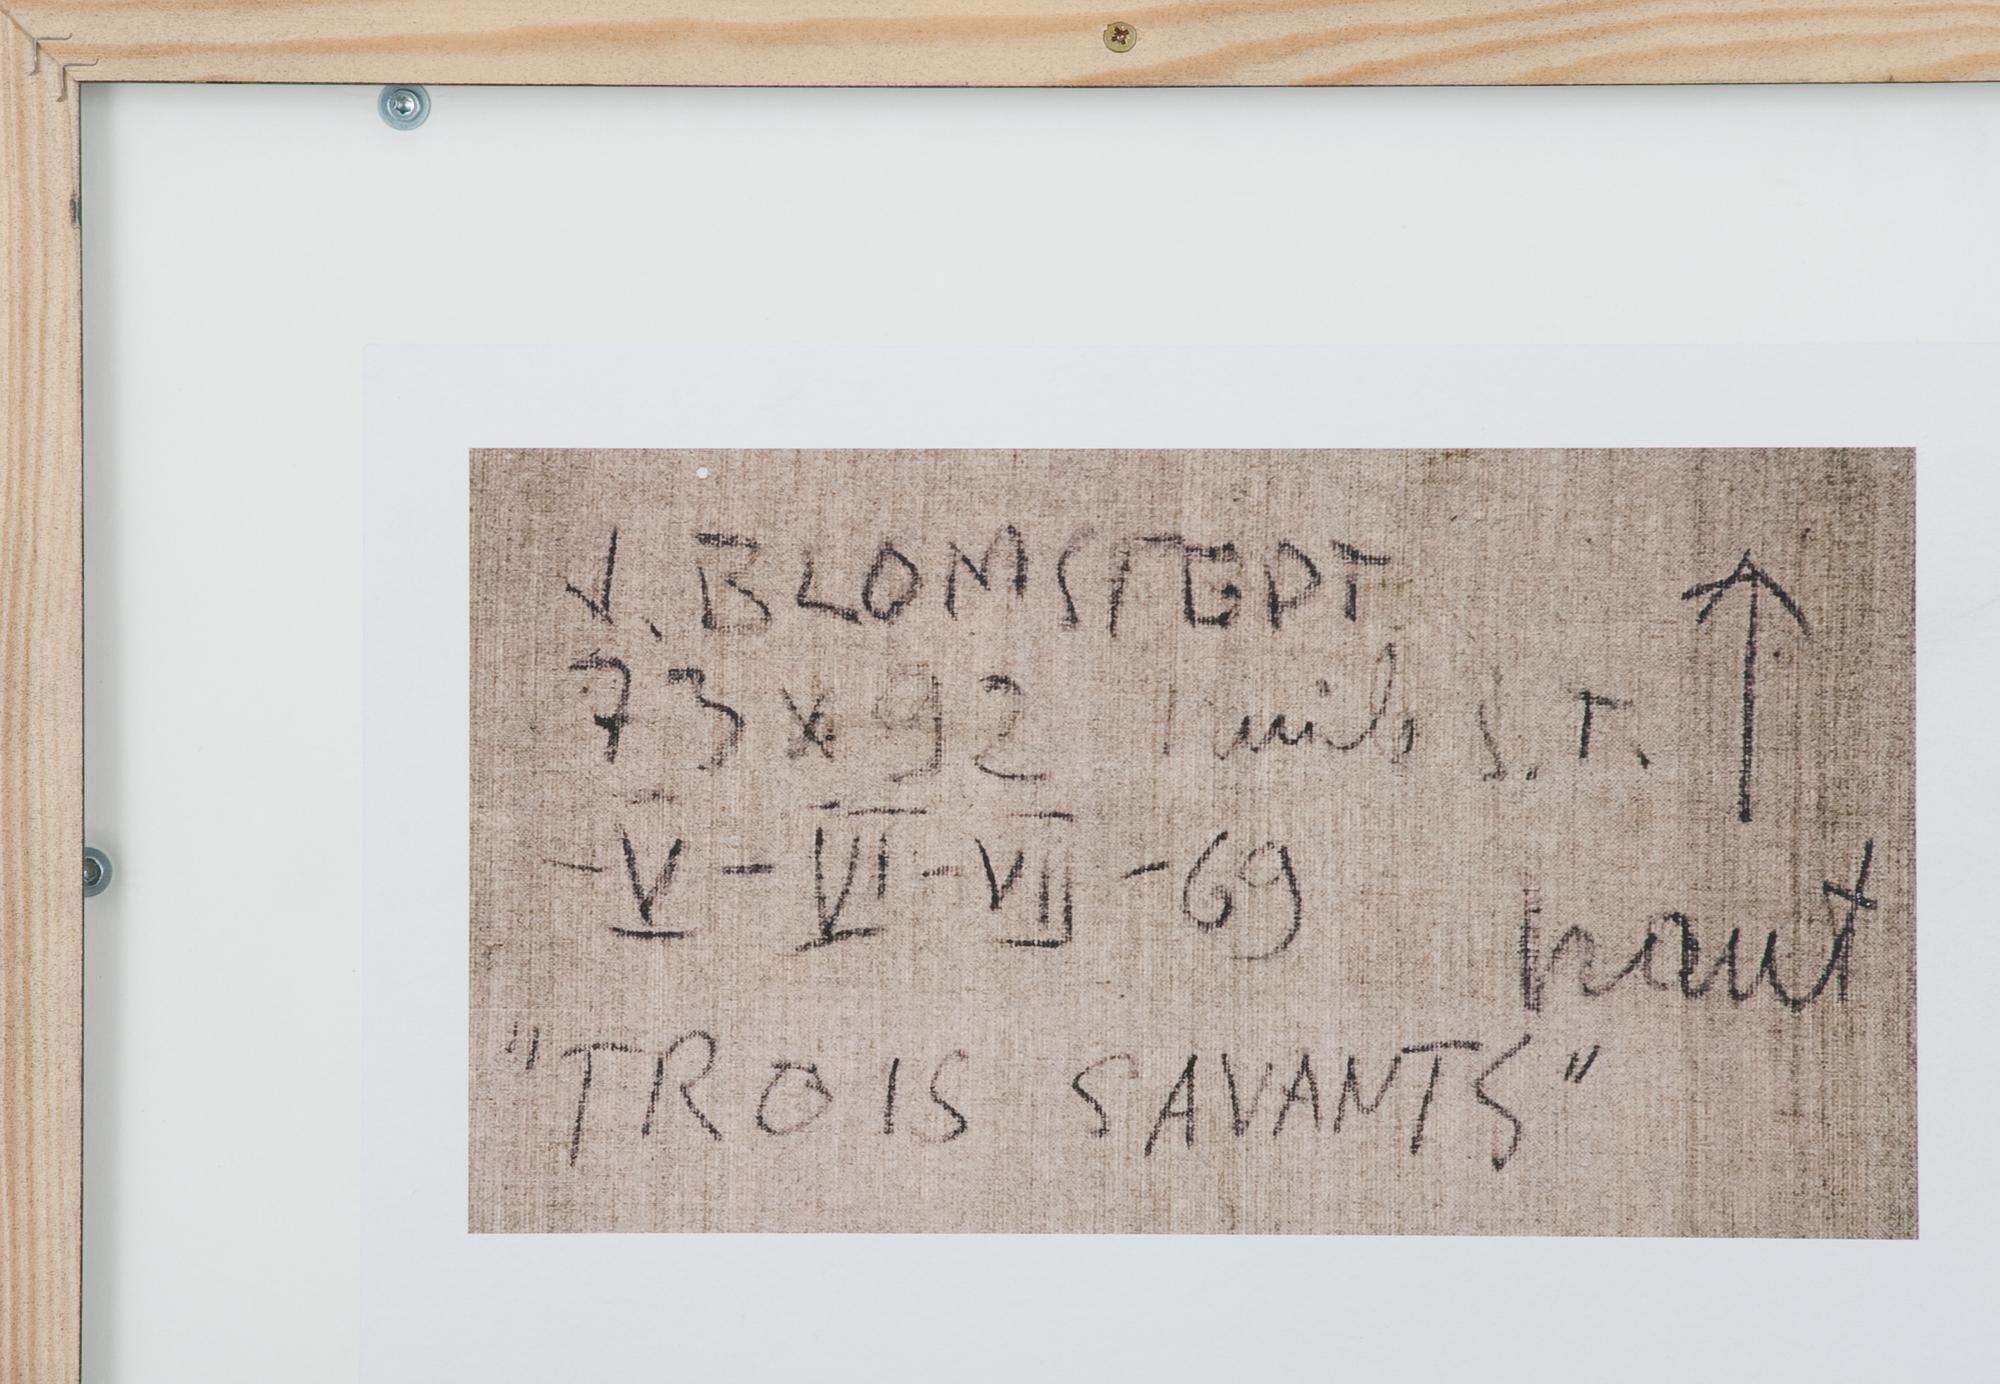 J. BLOMSTEDT
73 x 92 S. T.
- V - VI - VII - 69
haut
"TROIS SAVANTS"